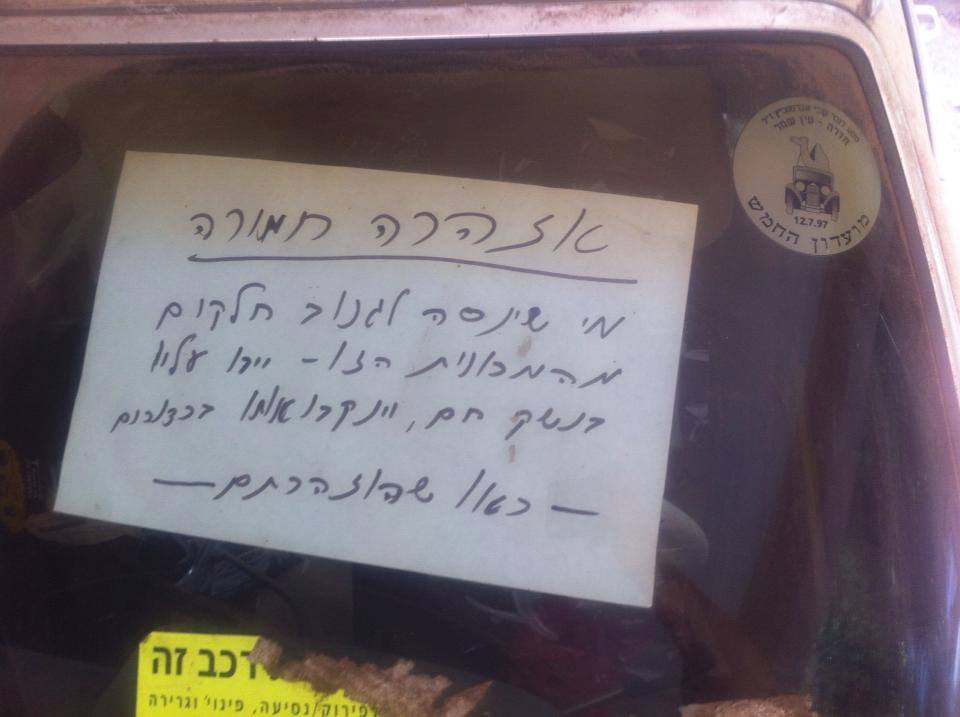 אזהרה חמורה
מי שינסה לגנוב חלקים
מהמכונית הזו - יירו עליו
בנשק חם, וינקבו אותו בכדורים
- ראו שהוזהרתם -
חדרה - עין שמר
12.7.97
מועדון החמש
רכב זה
לפירוק/נסיעה, פינוי וגרירה